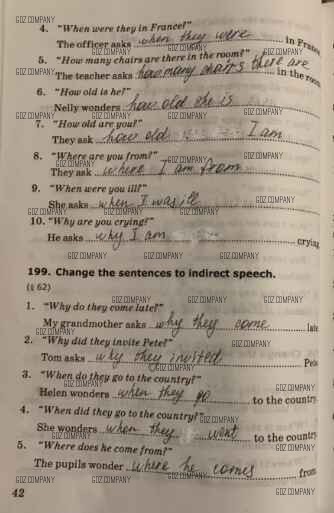 4. "When were they in France?"
The officer asks when they were in France
5. "How many chairs are there in the room?"
The teacher asks how many chairs there are in the room
6. "How old is he?"
Nelly wonders how old she is
7. "How old are you?"
They ask how old I am
8. "Where are you from?"
They ask where I am from
9. "When were you ill?"
She asks when I was ill
10. "Why are you crying?"
He asks why I am crying
199. Change the sentences to indirect speech.
(§ 62)
1. "Why do they come late?"
My grandmother asks why they come late
2. "Why did they invite Pete?"
Tom asks why they invited Pete
3. "When do they go to the country?"
Helen wonders when they go to the country.
4. "When did they go to the country?"
She wonders when they went to the country
5. "Where does he come from?"
The pupils wonder where he comes from
42
GDZ.COMPANY